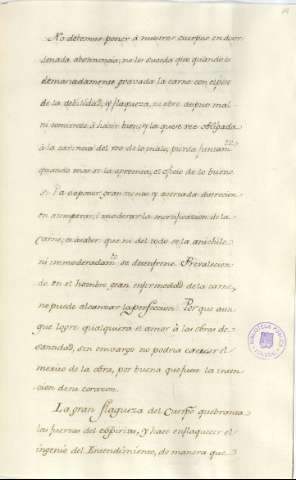 No debemos poner á nuestros cuerpos en desor-
denada abstinencia; no les suceda que quando es
demasiadamente gravada la carne con el peso
de la debilidad, y flaqueza, se obre despues mal,
ni comience á hacer bien; y la que se ve obligada
á la carencia del uso de lo malo, pierda juntam.te
quando mas se la apremia, el oficio de lo bueno.
Se ha de poner gran tiento y acertada discrecion
en atemperar, i moderar la mortificacion de la
Carne, es á saber que ni del todo se la anichile
ni immoderadam.te se desenfrene. Prevalecien-
do en el hombre gran enfermedad de la carne,
no puede alcanzar la perfeccion. Por que aun
que logre qualquiera el amor á las obras de
santidad, sin embargo no podrá
merito de la obra, por buena que fuere la inten-
cion de su corazon.
La gran flaqueza del Cuerpo quebranta
las fuerzas del espiritu, y hace enflaquecer el
ingenio del Entendimiento, de manera que
BIBLIOTECA
TOLEDO